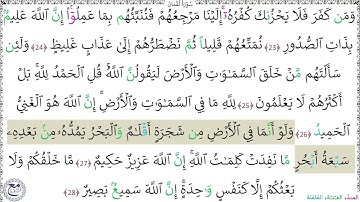 سُورَةُ لُقْمَان
وَمَن كَفَرَ فَلَا يَحْزُنكَ كُفْرُهُۥٓ ۚ إِلَيْنَا مَرْجِعُهُمْ فَنُنَبِّئُهُم بِمَا عَمِلُوٓا۟ ۚ إِنَّ ٱللَّهَ عَلِيمٌۢ
بِذَاتِ ٱلصُّدُورِ (23) نُمَتِّعُهُمْ قَلِيلًا ثُمَّ نَضْطَرُّهُمْ إِلَىٰ عَذَابٍ غَلِيظٍ (24) وَلَئِن
سَأَلْتَهُم مَّنْ خَلَقَ ٱلسَّمَـٰوَٰتِ وَٱلْأَرْضَ لَيَقُولُنَّ ٱللَّهُ ۚ قُلِ ٱلْحَمْدُ لِلَّهِ ۚ بَلْ
أَكْثَرُهُمْ لَا يَعْلَمُونَ (25) لِلَّهِ مَا فِى ٱلسَّمَـٰوَٰتِ وَٱلْأَرْضِ ۚ إِنَّ ٱللَّهَ هُوَ ٱلْغَنِىُّ
ٱلْحَمِيدُ (26) وَلَوْ أَنَّمَا فِى ٱلْأَرْضِ مِن شَجَرَةٍ أَقْلَـٰمٌ وَٱلْبَحْرُ يَمُدُّهُۥ مِنۢ بَعْدِهِۦ
سَبْعَةُ أَبْحُرٍ مَّا نَفِدَتْ كَلِمَـٰتُ ٱللَّهِ ۗ إِنَّ ٱللَّهَ عَزِيزٌ حَكِيمٌ (27) مَّا خَلْقُكُمْ وَلَا
بَعْثُكُمْ إِلَّا كَنَفْسٍ وَٰحِدَةٍ ۗ إِنَّ ٱللَّهَ سَمِيعٌۢ بَصِيرٌ (28)